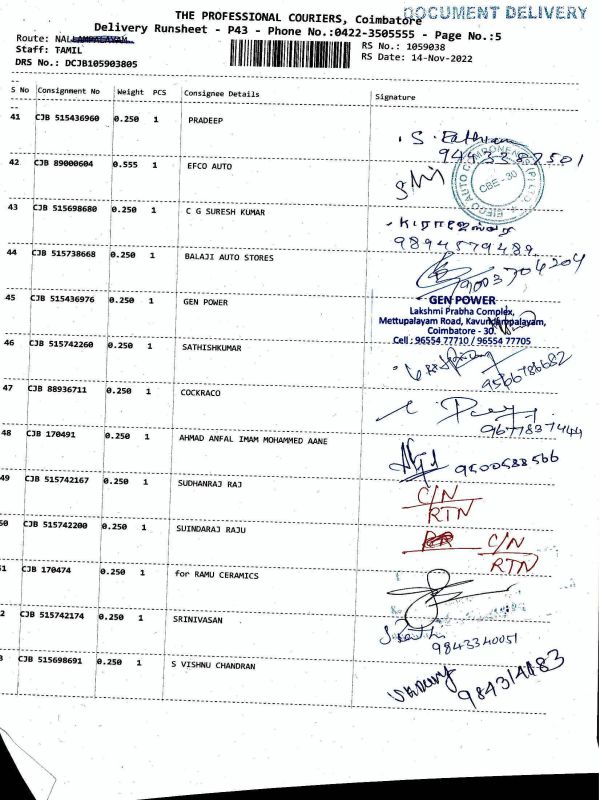 DOCUMENT DELIVERY
THE PROFESSIONAL COURIERS, Coimbatore
Delivery Runsheet - P43 - Phone No.:0422-3505555 - Page No.:5
Route: NALLAMPALAYAM
Staff: TAMIL
DRS No.: DCJB105903805
RS No.: 1059038
RS Date: 14-Nov-2022
S No Consignment No Weight PCS Consignee Details Signature
41 CJB 515436960 0.250 1 PRADEEP
9443387501
42 CJB 89000604 0.555 1 EFCO AUTO
CBE - 30
43 CJB 515698680 0.250 1 C G SURESH KUMAR
9894579489
44 CJB 515738668 0.250 1 BALAJI AUTO STORES
9003704204
45 CJB 515436976 0.250 1 GEN POWER
GEN POWER
Lakshmi Prabha Complex,
Mettupalayam Road, Kavundampalayam,
Coimbatore - 30.
Cell : 96554 77710 / 96554 77705
46 CJB 515742260 0.250 1 SATHISHKUMAR
9566786682
47 CJB 88936711 0.250 1 COCKRACO
9677837444
48 CJB 170491 0.250 1 AHMAD ANFAL IMAM MOHAMMED AANE
9500588566
49 CJB 515742167 0.250 1 SUDHANRAJ RAJ
C/N
RTN
50 CJB 515742200 0.250 1 SUINDARAJ RAJU
C/N
RTN
51 CJB 170474 0.250 1 for RAMU CERAMICS
2 CJB 515742174 0.250 1 SRINIVASAN
9843340051
3 CJB 515698691 0.250 1 S VISHNU CHANDRAN